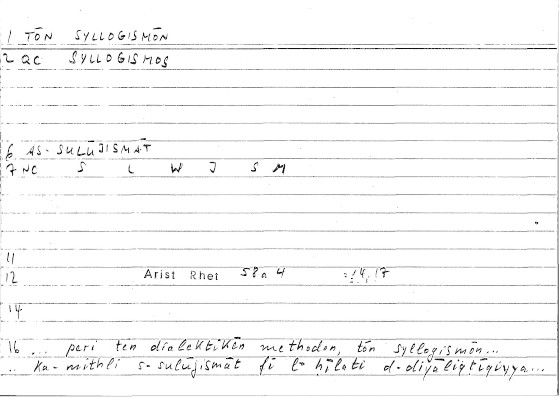 1 TŌN SYLLOGISMŌN
2 QC SYLLOGISMOS
6 AS-SULŪJISMĀT
7 NC S L W J S M
11
12 Arist Rhet 58a4 :14,17
14
16 ... peri ten dialektikēn methodon, tōn syllogismōn...
.. ka-mithli s-sulūjismāt fī l-ḥīlati d-diyāliqṭīqiyya...